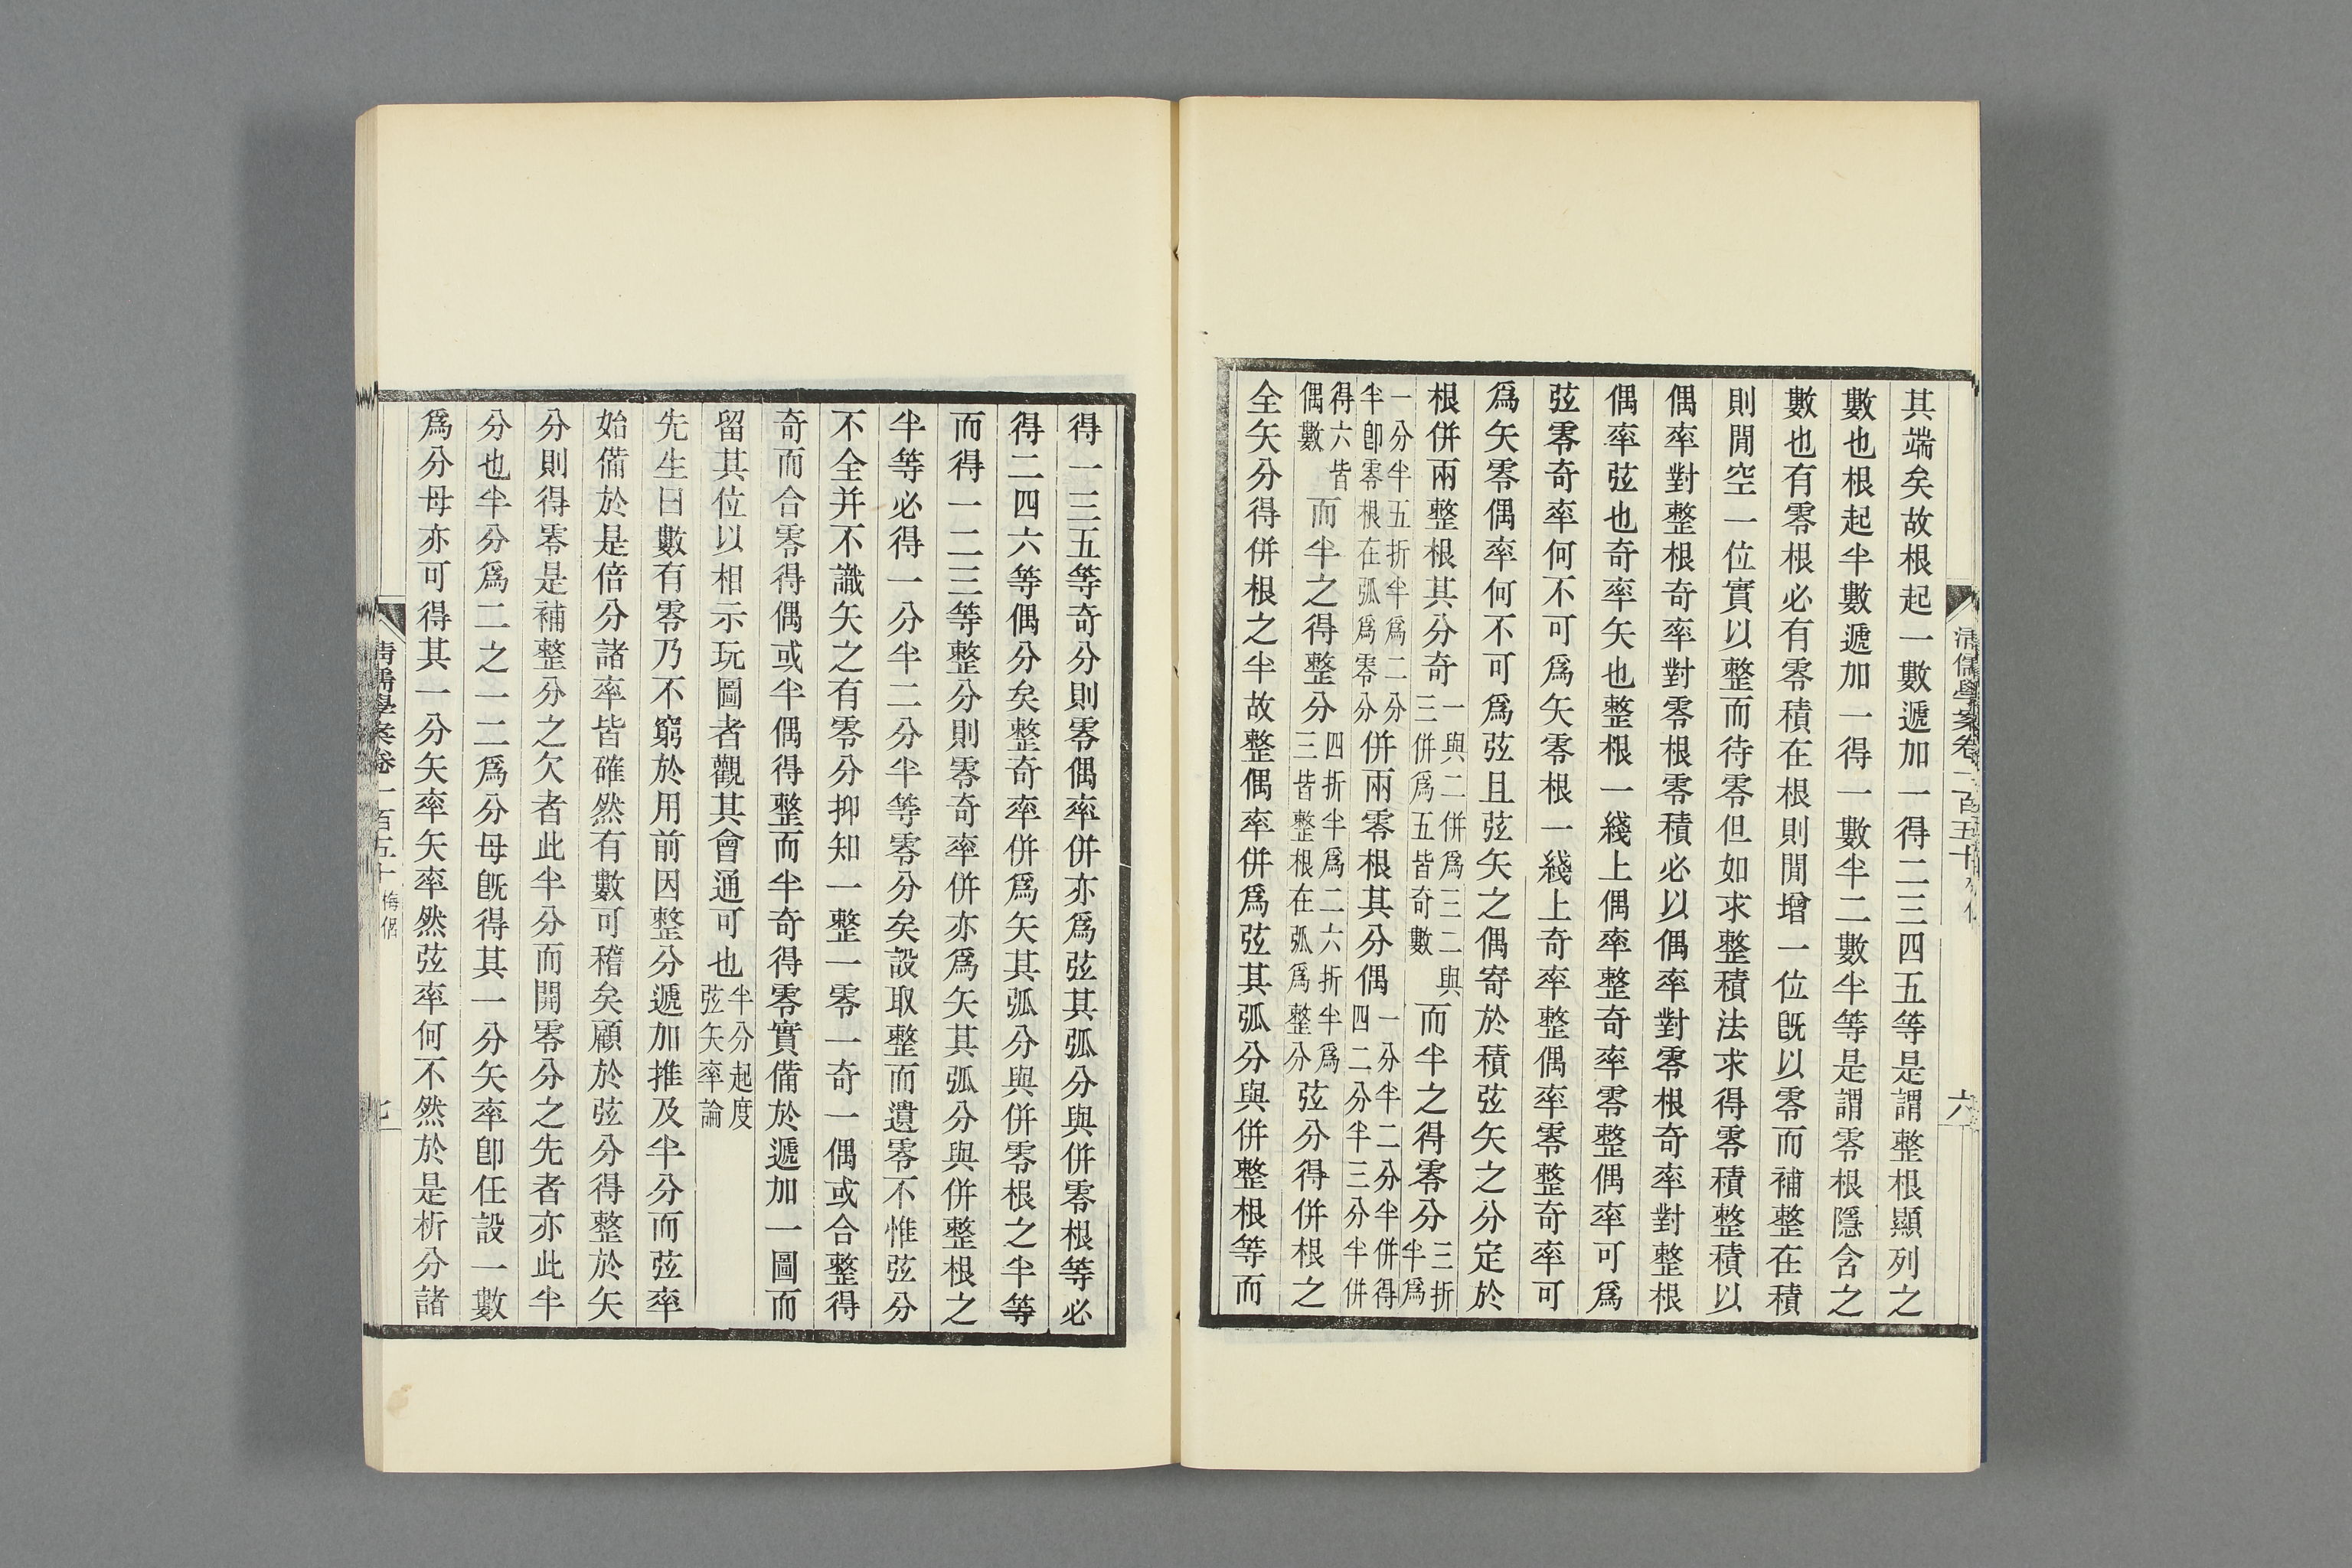 清儒學案卷一百五十 六
其端矣故根起一數遞加一得二三四五等是謂整根顯列之
數也根起半數遞加一得一數半二數半等是謂零根隱含之
數也有零根必有零積在根則閒增一位旣以零而補整在積
則閒空一位實以整而待零但如求整積法求得零積整積以
偶率對整根奇率對零根零積必以偶率對零根奇率對整根
偶率弦也奇率矢也整根一綫上偶率整奇率零整偶率可爲
弦零奇率何不可爲矢零根一綫上奇率整偶率零整奇率可
爲矢零偶率何不可爲弦且弦矢之偶寄於積弦矢之分定於
根併兩整根其分奇一與二併爲三二與三併爲五皆奇數而半之得零分三折半爲
一分半五折半爲二分半卽零根在弧爲零分併兩零根其分偶一分半二分半併得四二分半三分半併
得六皆偶數而半之得整分四折半爲二六折半爲三皆整根在弧爲整分弦分得併根之
全矢分得併根之半故整偶率併爲弦其弧分與併整根等而
得一三五等奇分則零偶率併亦爲弦其弧分與併零根等必
得二四六等偶分矣整奇率併爲矢其弧分與併零根之半等
而得一二三等整分則零奇率併亦爲矢其弧分與併整根之
半等必得一分半二分半等零分矣設取整而遺零不惟弦分
不全并不識矢之有零分抑知一整一零一奇一偶或合整得
奇而合零得偶或半偶得整而半奇得零實備於遞加一圖而
留其位以相示玩圖者觀其會通可也半分起度弦矢率論
先生曰數有零乃不窮於用前因整分遞加推及半分而弦率
始備於是倍分諸率皆確然有數可稽矣顧於弦分得整於矢
分則得零是補整分之欠者此半分而開零分之先者亦此半
分也半分爲二之一二爲分母旣得其一分矢率卽任設一數
爲分母亦可得其一分矢率矢率然弦率何不然於是析分諸
清儒學案卷一百五十 梅侶 七